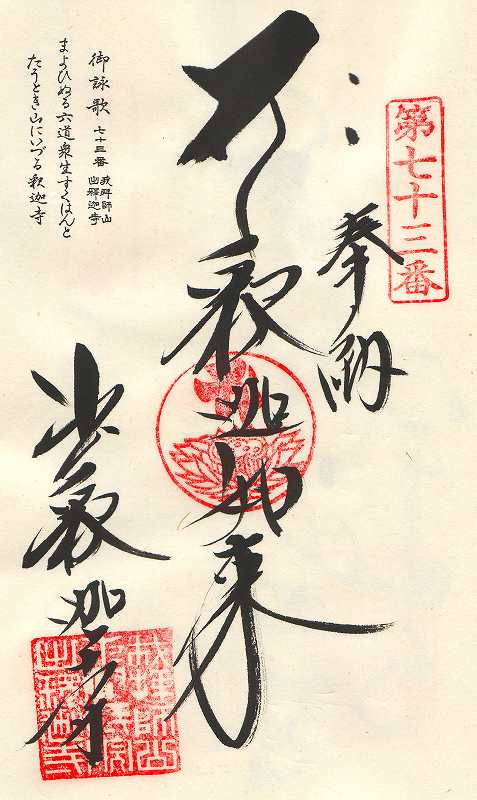 第七十三番
奉納
釈迦如来
出釈迦寺
御詠歌 七十三番 我拝師山 出釋迦寺
まよひぬる六道衆生すくはんと
たうとき山にいづる釈迦寺